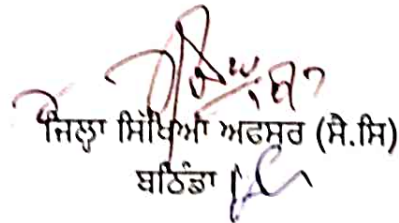 ਜਿਲ੍ਹਾ ਸਿੱਖਿਆ ਅਫਸਰ (ਸੈ.ਸਿ)
ਬਠਿੰਡਾ।